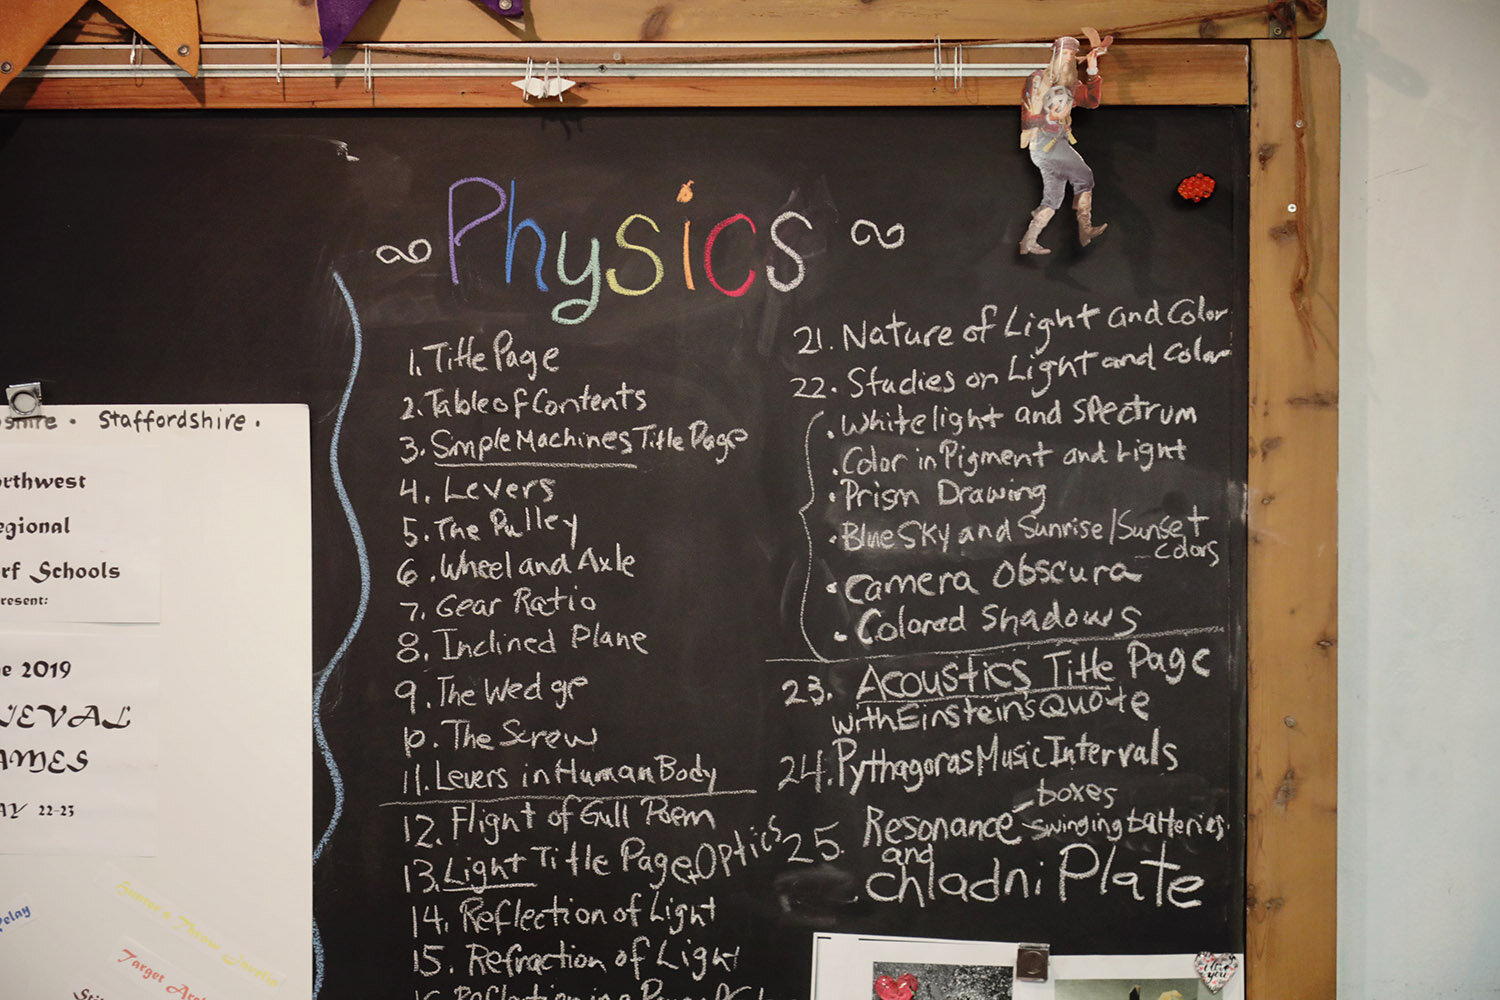 Physics
1. Title Page
2. Table of Contents
3. Simple Machines Title Page
4. Levers
5. The Pulley
6. Wheel and Axle
7. Gear Ratio
8. Inclined Plane
9. The Wedge
10. The Screw
11. Levers in Human Body
12. Flight of Gull Poem
13. Light Title Page, Optics
14. Reflection of Light
15. Refraction of Light
21. Nature of Light and Color
22. Studies on Light and Color
. White light and spectrum
. Color in Pigment and Light
. Prism Drawing
. Blue Sky and Sunrise/Sunset
colors
. Camera Obscura
. Colored Shadows
23. Acoustics Title Page
with Einstein's Quote
24. Pythagoras Music Intervals
boxes
25. Resonance swinging batteries
and
Chladni Plate
Staffordshire .
2019
22-23
Target
I love you